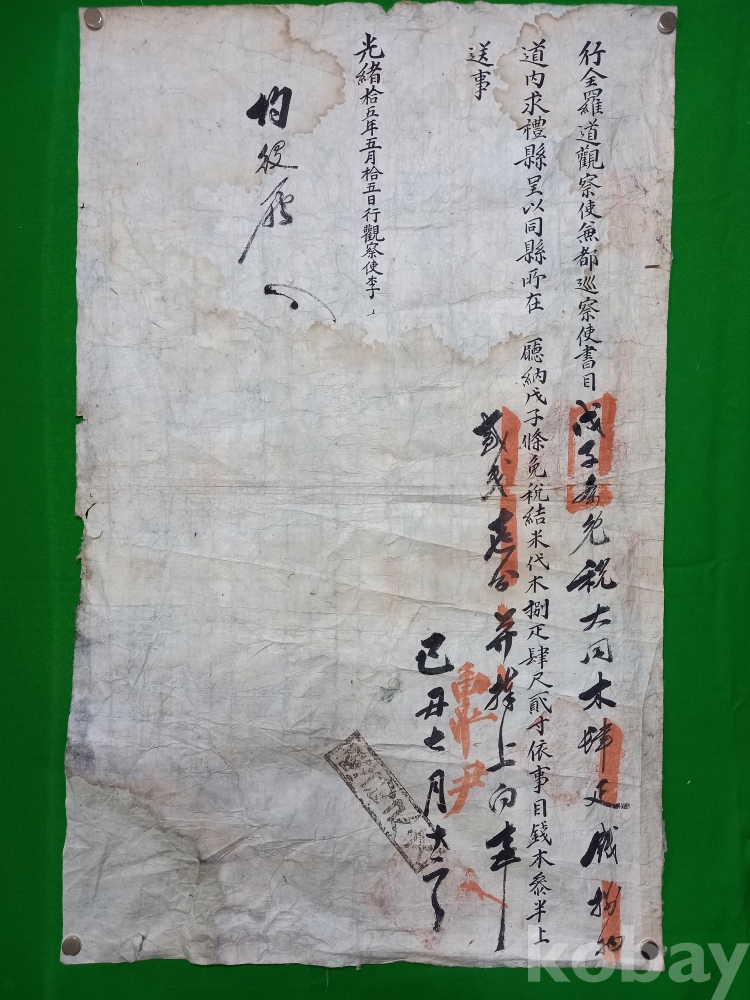 行全羅道觀察使兼都巡察使書目
戊子条免稅大同木肆疋戔捌
道內求禮縣呈以同縣所在 廳納戊子條免稅結米代木捌疋肆尺貳寸依事目錢木參半上
送事
壹分并捧上向事
己丑七月十二
光緖拾五年五月拾五日行觀察使李
均役廳
尹
kobay